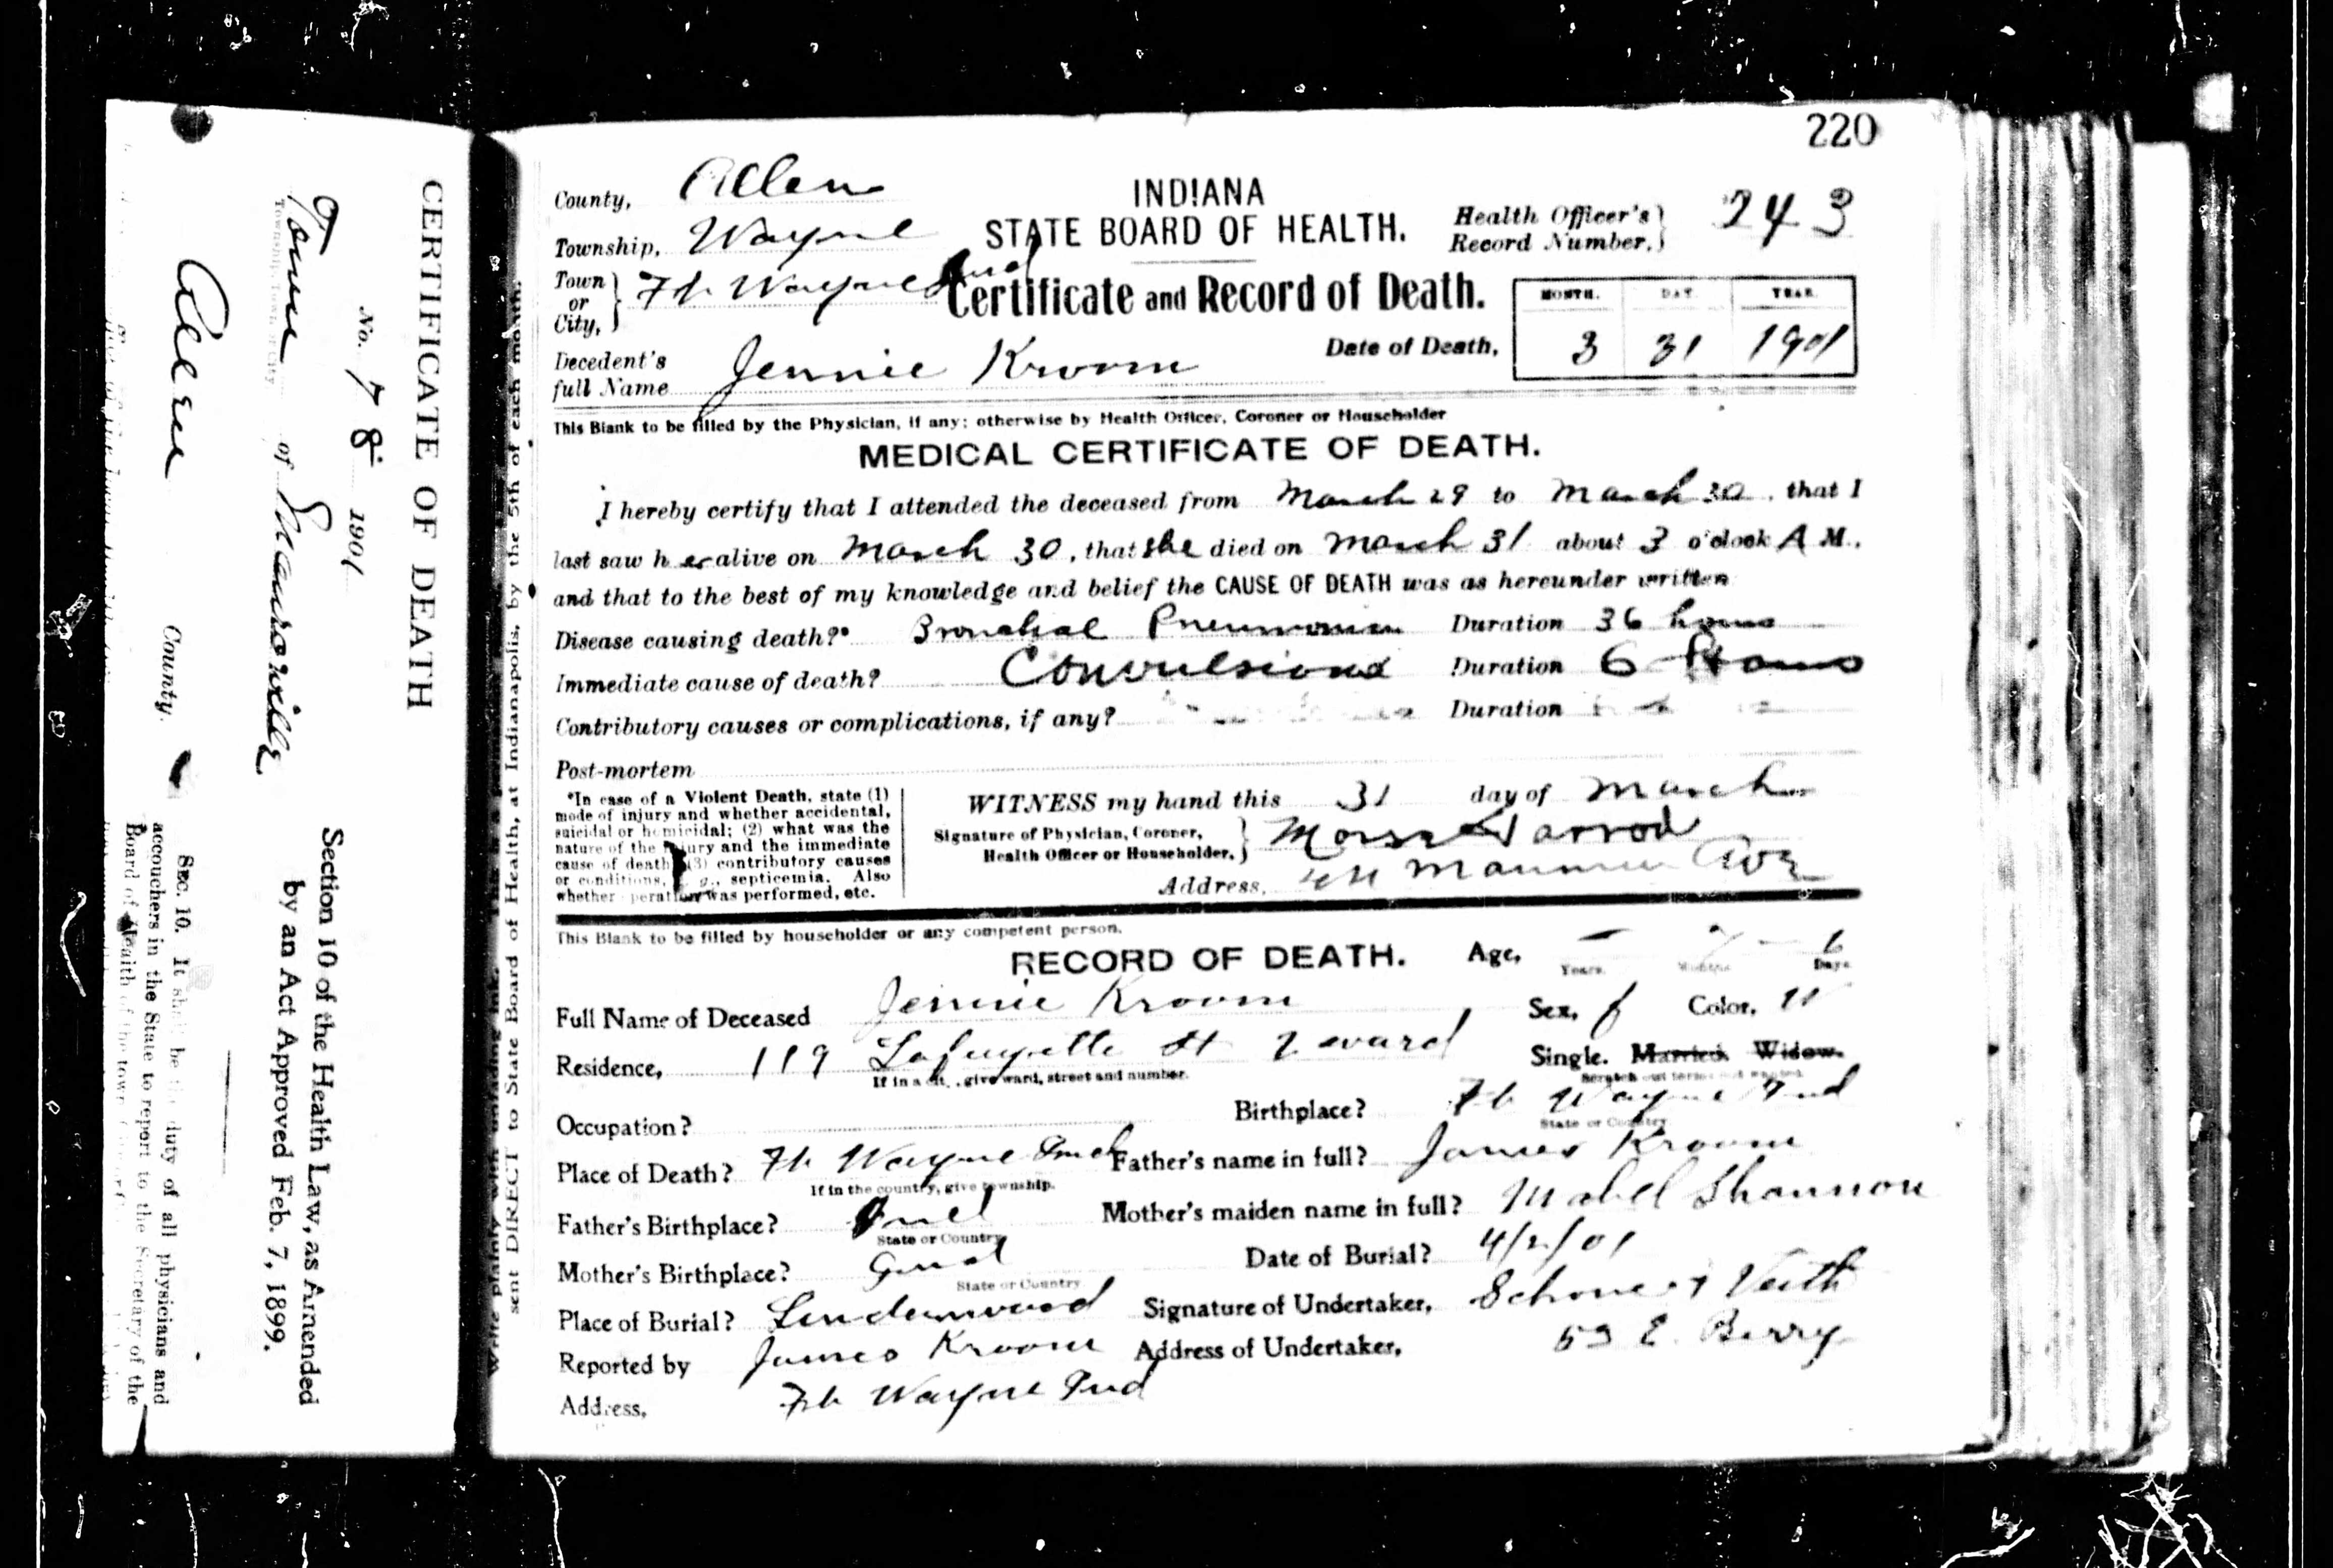 220
County, Allen
INDIANA
STATE BOARD OF HEALTH.
Health Officer's Record Number, 243
Township, Wayne
Town or City, Ft. Wayne Ind
Certificate and Record of Death.
MONTH. DAY. YEAR.
Date of Death, 3 31 1901
Decedent's full Name Jennie Kroom
This Blank to be filled by the Physician, if any; otherwise by Health Officer, Coroner or Householder
MEDICAL CERTIFICATE OF DEATH.
I hereby certify that I attended the deceased from March 29 to March 30, that I
last saw her alive on March 30, that she died on March 31 about 3 o'clock A M.,
and that to the best of my knowledge and belief the CAUSE OF DEATH was as hereunder written
Disease causing death?* Bronchial Pneumonia Duration 36 hours
Immediate cause of death? Convulsions Duration 6 Hours
Contributory causes or complications, if any? Duration
Post-mortem
*In case of a Violent Death, state (1)
mode of injury and whether accidental,
suicidal or homicidal; (2) what was the
nature of the injury and the immediate
cause of death; (3) contributory causes
or conditions, e. g., septicemia. Also
whether operation was performed, etc.
WITNESS my hand this 31 day of March
Signature of Physician, Coroner,
Health Officer or Householder, Morse Harrod
Address, Maumee Ave
This Blank to be filled by householder or any competent person.
RECORD OF DEATH. Age, Years. Months. 6 Days.
Full Name of Deceased Jennie Kroom Sex, f Color, W
Residence, 119 Lafayette St 2 ward Single. Married. Widow.
If in a city, give ward, street and number. Scratch out terms not wanted.
Occupation? Birthplace? Ft Wayne Ind
State or Country
Place of Death? Ft Wayne Ind Father's name in full? James Kroom
If in the country, give township.
Father's Birthplace? Ind Mother's maiden name in full? Mabel Shannon
State or Country
Mother's Birthplace? Ind Date of Burial? 4/2/01
State or Country
Place of Burial? Lindenwood Signature of Undertaker, Schone & Veith
Reported by James Kroom Address of Undertaker, 53 E. Berry
Address, Ft Wayne Ind
sent DIRECT to State Board of Health, at Indianapolis, by the 5th of each month.
CERTIFICATE OF DEATH
No. 78 1901
Town of Monroeville
Township, Town or City
Allen County.
Section 10 of the Health Law, as Amended
by an Act Approved Feb. 7, 1899.
SEC. 10. It shall be the duty of all physicians and
accouchers in the State to report to the Secretary of the
Board of Health of the town